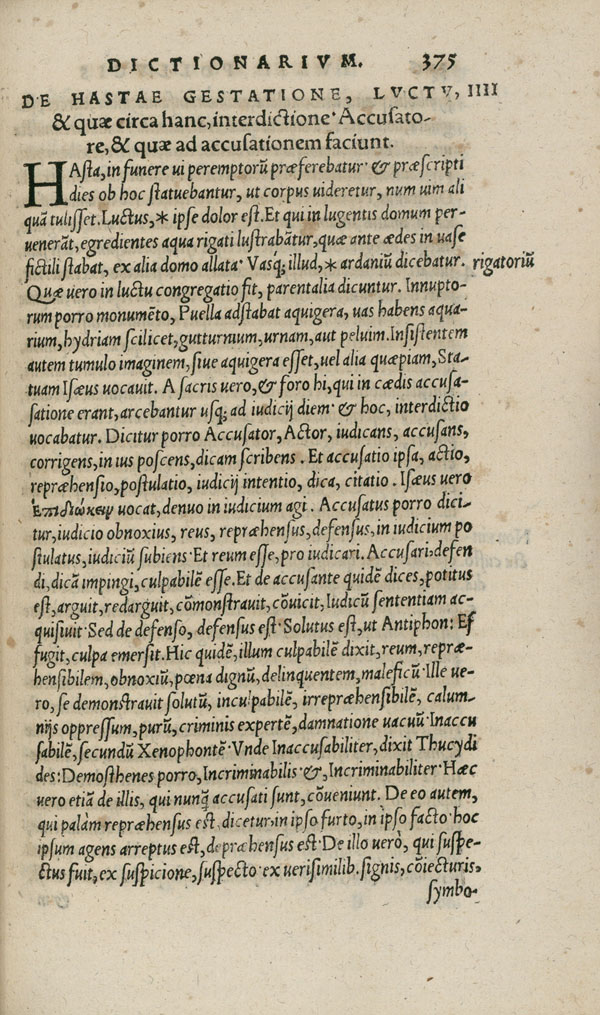 DICTIONARIVM. 375
DE HASTAE GESTATIONE, LVCTV, IIII
& quæ circa hanc, interdictione· Accusato-
re, & quæ ad accusationem faciunt.
HAsta, in funere ui peremptorũ præferebatur· & præscripti
dies ob hoc statuebantur, ut corpus uideretur, num uim ali
quã tulisset. Luctus, * ipse dolor est. Et qui in lugentis domum per-
uenerãt, egredientes aqua rigati lustrabãtur, quæ ante ædes in uase
fictili stabat, ex alia domo allata· Vasq; illud, * ardaniũ dicebatur. rigatoriũ
Quæ uero in luctu congregatio fit, parentalia dicuntur. Innupto-
rum porro monumẽto, Puella adstabat aquigera, uas habens aqua-
rium, hydriam scilicet, gutturnium, urnam, aut peluim. Insistentem
autem tumulo imaginem, siue aquigera esset, uel alia quæpiam, Sta-
tuam Isæus uocauit. A sacris uero, & foro hi, qui in cædis accusa-
satione erant, arcebantur usq; ad iudicij diem· & hoc, interdictio
uocabatur. Dicitur porro Accusator, Actor, iudicans, accusans,
corrigens, in ius poscens, dicam scribens. Et accusatio ipsa, actio,
repræhensio, postulatio, iudicij intentio, dica, citatio. Isæus uero
Επιδιώκειν uocat, denuo in iudicium agi. Accusatus porro dici-
tur, iudicio obnoxius, reus, repræhensus, defensus, in iudicium po
stulatus, iudiciũ subiens· Et reum esse, pro iudicari. Accusari: defen
di, dicã impingi, culpabilẽ esse. Et de accusante quidẽ dices, potitus
est, arguit, redarguit, cõmonstrauit, cõuicit, Iudicũ sententiam ac-
quisiuit· Sed de defenso, defensus est· Solutus est, ut Antiphon: Ef
fugit, culpa emersit. Hic quidẽ, illum culpabilẽ dixit, reum, repræ-
hensibilem, obnoxiũ, pœna dignũ, delinquentem, maleficũ· Ille ue-
ro, se demonstrauit solutũ, inculpabilẽ, irrepræhensibilẽ, calum-
nijs oppressum, purũ, criminis expertẽ, damnatione uacuũ· Inaccu
sabilẽ, secundũ Xenophontẽ· Vnde Inaccusabiliter, dixit Thucydi
des: Demosthenes porro, Incriminabilis· &, Incriminabiliter· Hæc
uero etiã de illis, qui nunq̃ accusati sunt, cõueniunt. De eo autem,
qui palàm repræhensus est, dicetur: in ipso furto, in ipso facto· hoc
ipsum agens arreptus est, depræhensus est· De illo uerò, qui suspe-
ctus fuit, ex suspicione, suspecto· ex uerisimilib. signis, cõiecturis,
symbo-